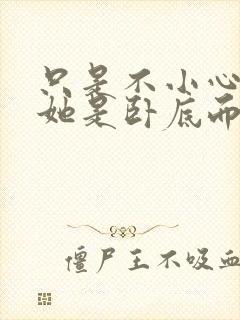 只是不小心
她是卧底而
僵尸王不吸血